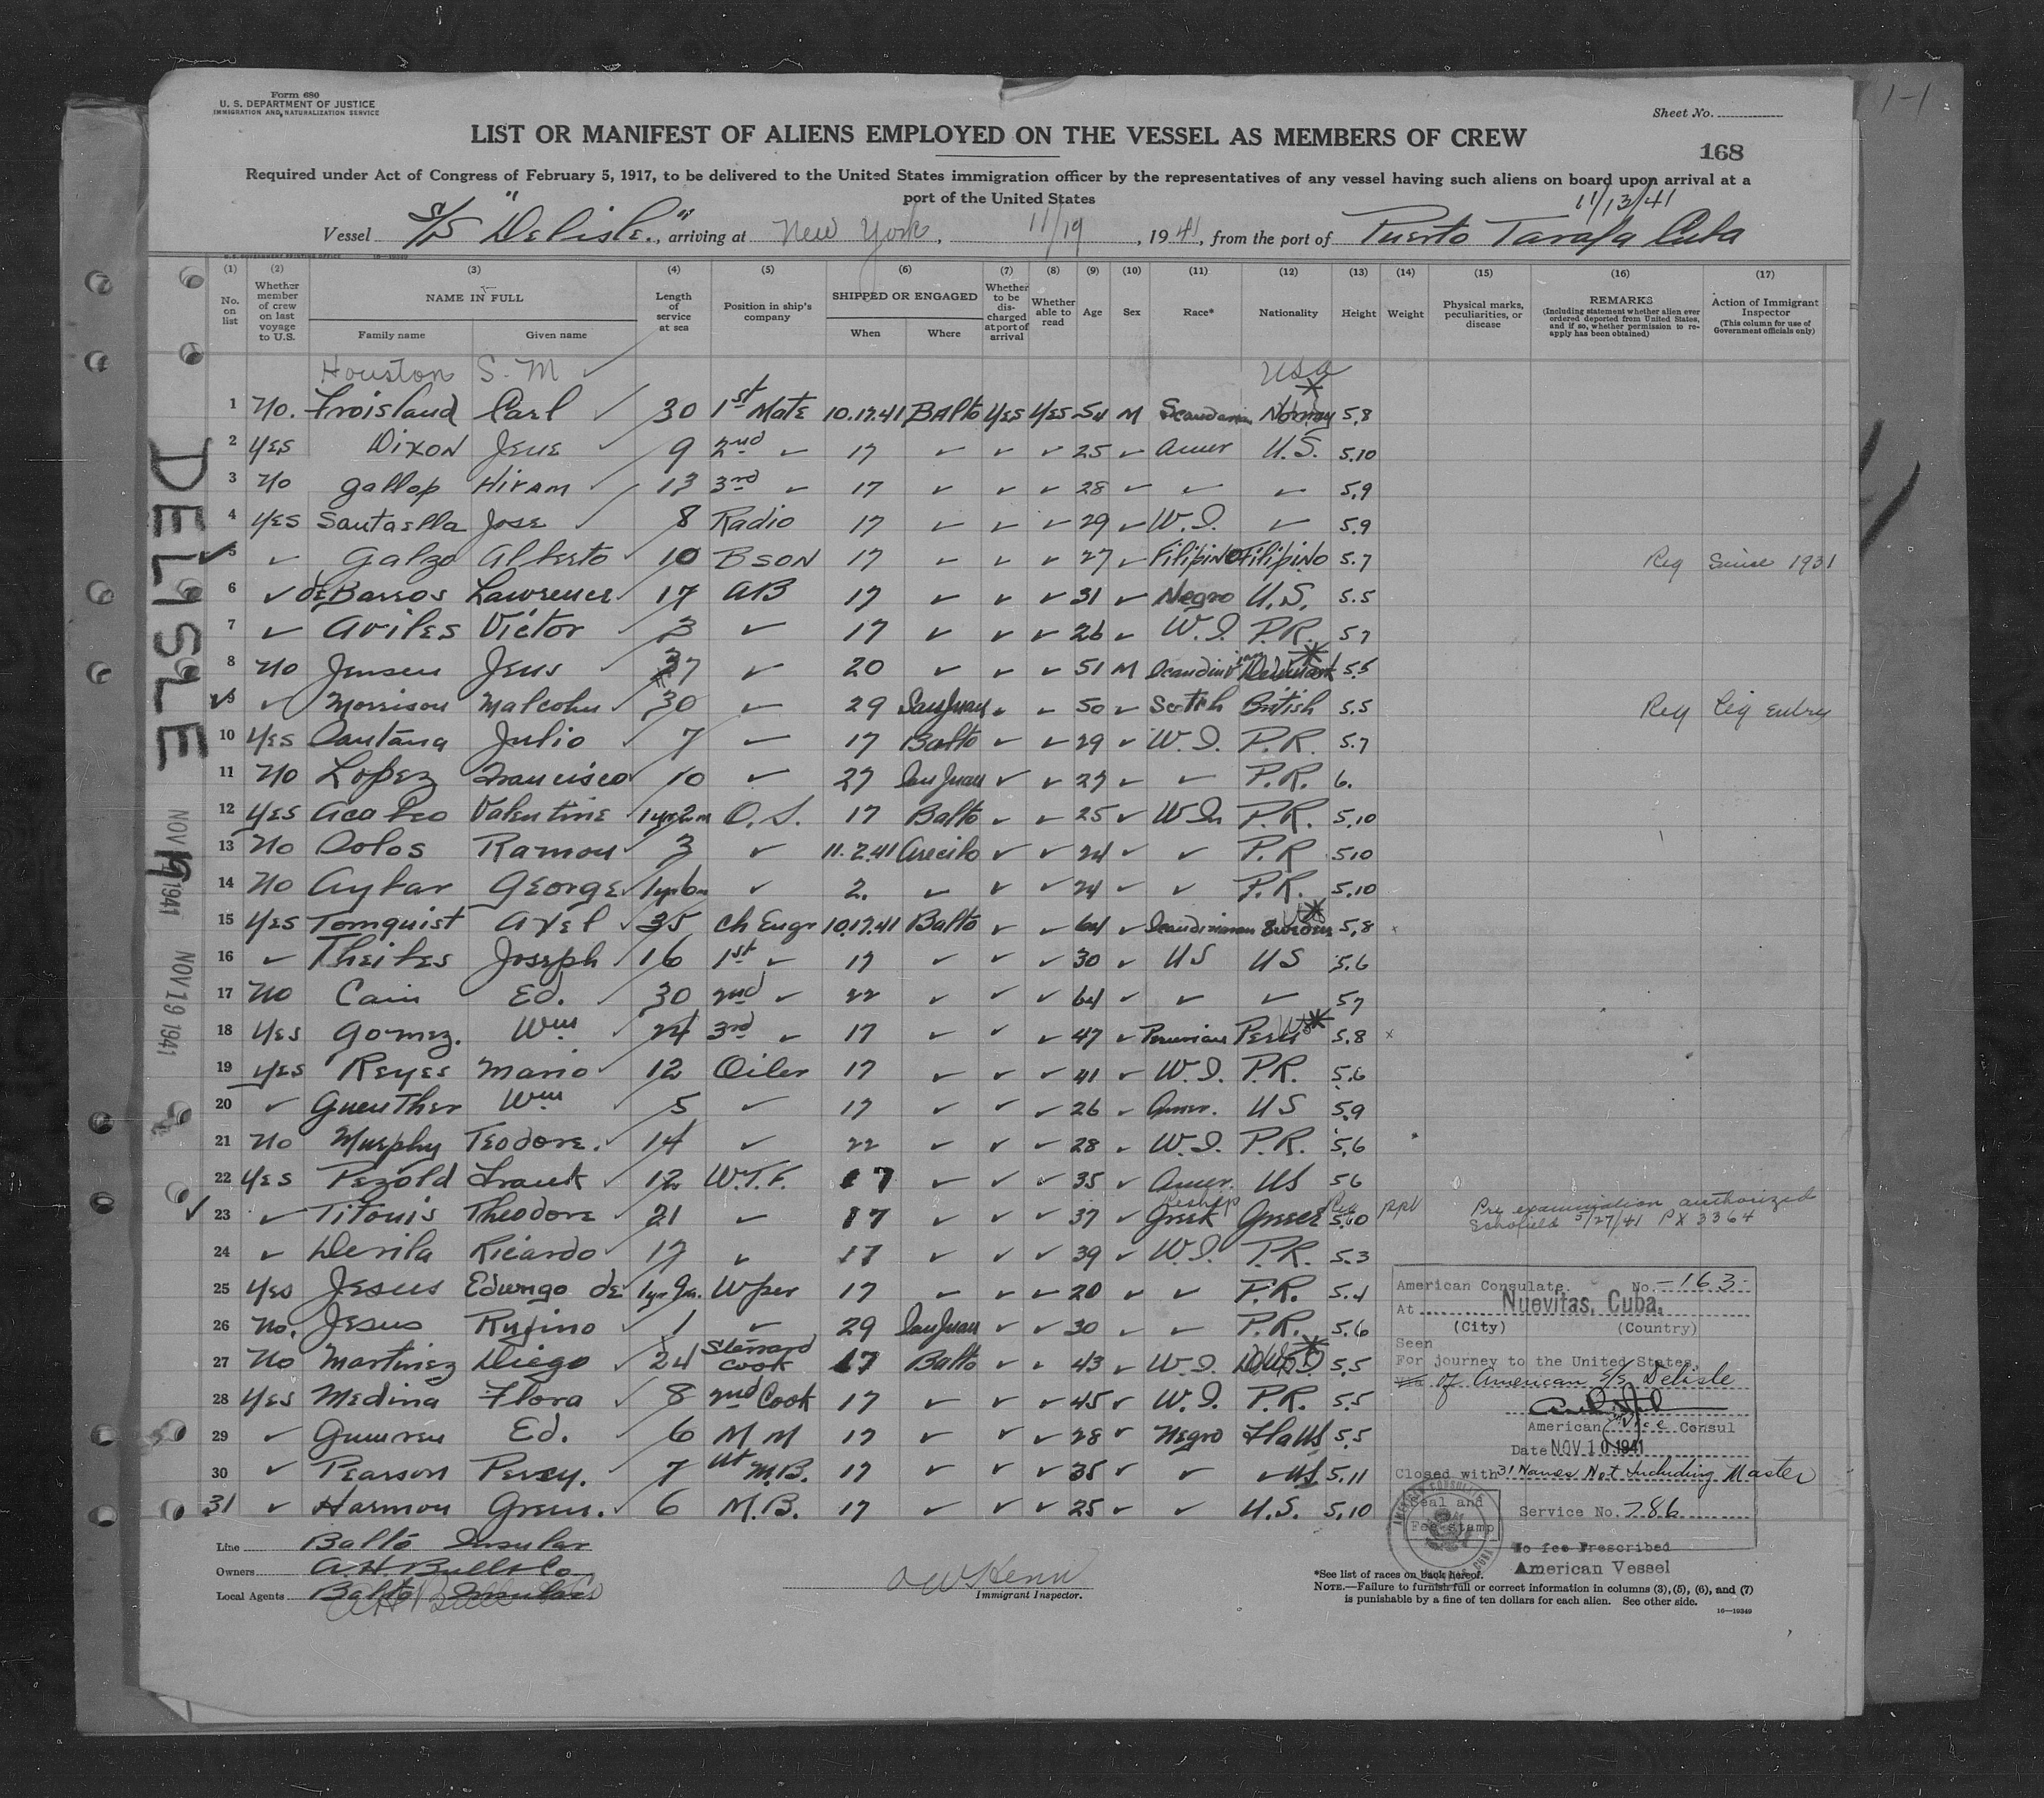 Form 680
U. S. DEPARTMENT OF JUSTICE
IMMIGRATION AND NATURALIZATION SERVICE
1-1
Sheet No.
LIST OR MANIFEST OF ALIENS EMPLOYED ON THE VESSEL AS MEMBERS OF CREW
168
Required under Act of Congress of February 5, 1917, to be delivered to the United States immigration officer by the representatives of any vessel having such aliens on board upon arrival at a
port of the United States
11/13/41
Vessel S/S "DELISLE", arriving at New York, 11/19, 1941, from the port of Puerto Tarafa Cuba
(1) (2) (3) (4) (5) (6) (7) (8) (9) (10) (11) (12) (13) (14) (15) (16) (17)
No. on list
Whether member of crew on last voyage to U.S.
NAME IN FULL
Family name Given name
Length of service at sea
Position in ship's company
SHIPPED OR ENGAGED
When Where
Whether to be discharged at port of arrival
Whether able to read
Age
Sex
Race*
Nationality
Height
Weight
Physical marks, peculiarities, or disease
REMARKS
(Including statement whether alien ever ordered deported from United States, and if so, whether permission to reapply has been obtained)
Action of Immigrant Inspector
(This column for use of Government officials only)
Houston S. M ✓ USA
1 No. Froisland Carl ✓ 30 1st Mate 10.17.41 Balto Yes Yes 54 M Norway 5.8
2 Yes Dixon Jene 9 2nd ✓ 17 ✓ ✓ ✓ 25 ✓ Amer U.S. 5.10
3 No Gallop Hiram ✓ 13 3rd ✓ 17 ✓ ✓ ✓ 28 ✓ ✓ ✓ 5.9
4 Yes Santaella Jose ✓ 8 Radio 17 ✓ ✓ ✓ 29 ✓ W.I. ✓ 5.9
5 ✓ Galzo Alberto ✓ 10 Bson 17 ✓ ✓ ✓ 27 ✓ Filipino Filipino 5.7 Reg Since 1931
6 ✓ deBarros Lawrence 17 AB 17 ✓ ✓ ✓ 31 ✓ Negro U.S. 5.5
7 ✓ Aviles Victor ✓ 3 ✓ 17 ✓ ✓ ✓ 26 ✓ W.I. P.R. 5.7
8 No Jensen Jens ✓ 37 ✓ 20 ✓ ✓ ✓ 51 M Denmark 5.5
9 ✓ Morrison Malcolm ✓ 30 ✓ 29 San Juan ✓ ✓ 50 ✓ Scotch British 5.5 Reg Leg Entry
10 Yes Santana Julio ✓ 7 ✓ 17 Balto ✓ ✓ 29 ✓ W.I. P.R. 5.7
11 No Lopez Francisco 10 ✓ 27 San Juan ✓ ✓ 27 ✓ ✓ P.R. 6.
12 Yes Valentine 1yr2m O.S. 17 Balto ✓ ✓ 25 ✓ W.In P.R. 5.10
13 No Ramon ✓ 3 ✓ 11.2.41 Arecibo ✓ ✓ 24 ✓ ✓ P.R 5.10
14 No Aybar George ✓ 1yr6m ✓ 2. ✓ ✓ ✓ 24 ✓ ✓ P.R. 5.10
15 Yes Tornquist Axel ✓ 35 Ch Engr 10.17.41 Balto ✓ ✓ 64 ✓ Scandinavian 5.8
16 ✓ Theites Joseph ✓ 16 1st ✓ 17 ✓ ✓ ✓ 30 ✓ US US 5.6
17 No Cain Ed. ✓ 30 2nd ✓ 22 ✓ ✓ ✓ 64 ✓ ✓ ✓ 5.7
18 Yes Gomez. Wm ✓ 24 3rd ✓ 17 ✓ ✓ ✓ 47 ✓ Peruvian Peru 5.8
19 Yes Reyes Mario ✓ 12 Oiler 17 ✓ ✓ ✓ 41 ✓ W.I. P.R. 5.6
20 ✓ Guenther Wm ✓ 5 ✓ 17 ✓ ✓ ✓ 26 ✓ Amer. US 5.9
21 No Murphy Teodore. ✓ 14 ✓ 22 ✓ ✓ ✓ 28 ✓ W.I. P.R. 5.6
22 Yes Pezold Frank ✓ 12 W.T.F. 17 ✓ ✓ ✓ 35 ✓ Amer. US 5.6
23 ✓ Titonis Theodore ✓ 21 ✓ 17 ✓ ✓ ✓ 37 ✓ Greek Greece 5.10 Pre examination authorized
Schofield 5/27/41 PX 3364
24 ✓ Ricardo ✓ 17 ✓ 17 ✓ ✓ ✓ 39 ✓ W.I. P.R. 5.3
25 Yes Jesus de Wper 17 ✓ ✓ ✓ 20 ✓ ✓ P.R. 5.4
26 No. Jesus Rufino ✓ 1 ✓ 29 San Juan ✓ ✓ 30 ✓ ✓ P.R. 5.6
27 No Martinez Diego ✓ 24 Steward Cook 17 Balto ✓ ✓ 43 ✓ W.I. 5.5
28 Yes Medina Flora ✓ 8 2nd Cook 17 ✓ ✓ ✓ 45 ✓ W.I. P.R. 5.5
29 ✓ Ed. ✓ 6 M M 17 ✓ ✓ ✓ 28 ✓ Negro US 5.5
30 ✓ Pearson Percy. ✓ 7 M.B. 17 ✓ ✓ ✓ 35 ✓ ✓ US 5.11
31 ✓ Harmon ✓ 6 M.B. 17 ✓ ✓ ✓ 25 ✓ ✓ U.S. 5.10
DELISLE
NOV 19 1941
NOV 19 1941
American Consulate. No. 163
At Nuevitas, Cuba.
(City) (Country)
Seen
For journey to the United States,
of American S/s Delisle
American Vice Consul
Date NOV 10 1941
Closed with 31 Names Not Including Master
Seal and
Fee stamp
Service No. 786
No fee Prescribed
American Vessel
Line Balto Insular
Owners A.H. Bull & Co
Local Agents Balto Insular
AH Bull & Co
Immigrant Inspector.
*See list of races on back hereof.
NOTE.—Failure to furnish full or correct information in columns (3), (5), (6), and (7)
is punishable by a fine of ten dollars for each alien. See other side.
16—19349